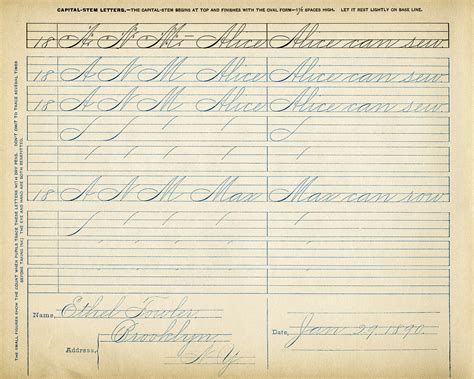 CAPITAL-STEM LETTERS.—THE CAPITAL-STEM BEGINS AT TOP AND FINISHES WITH THE OVAL FORM—1½ SPACES HIGH. LET IT REST LIGHTLY ON BASE LINE.
18 A N M Alice Alice can sew
18 A N M Alice Alice can sew
18 A N M Alice Alice can sew
18 A N M Max Max can row
Name, Ethel Fowler
Brooklyn
Address, N.Y.
Date, Jan 29 1890
THE SMALL FIGURES SHOW THE COUNT WHEN PUPILS TRACE THESE LETTERS WITH DRY PENS. DON'T OMIT TO TRACE SEVERAL TIMES
BEFORE TAKING INK; THE EYE AND HAND ARE BOTH BENEFITTED.